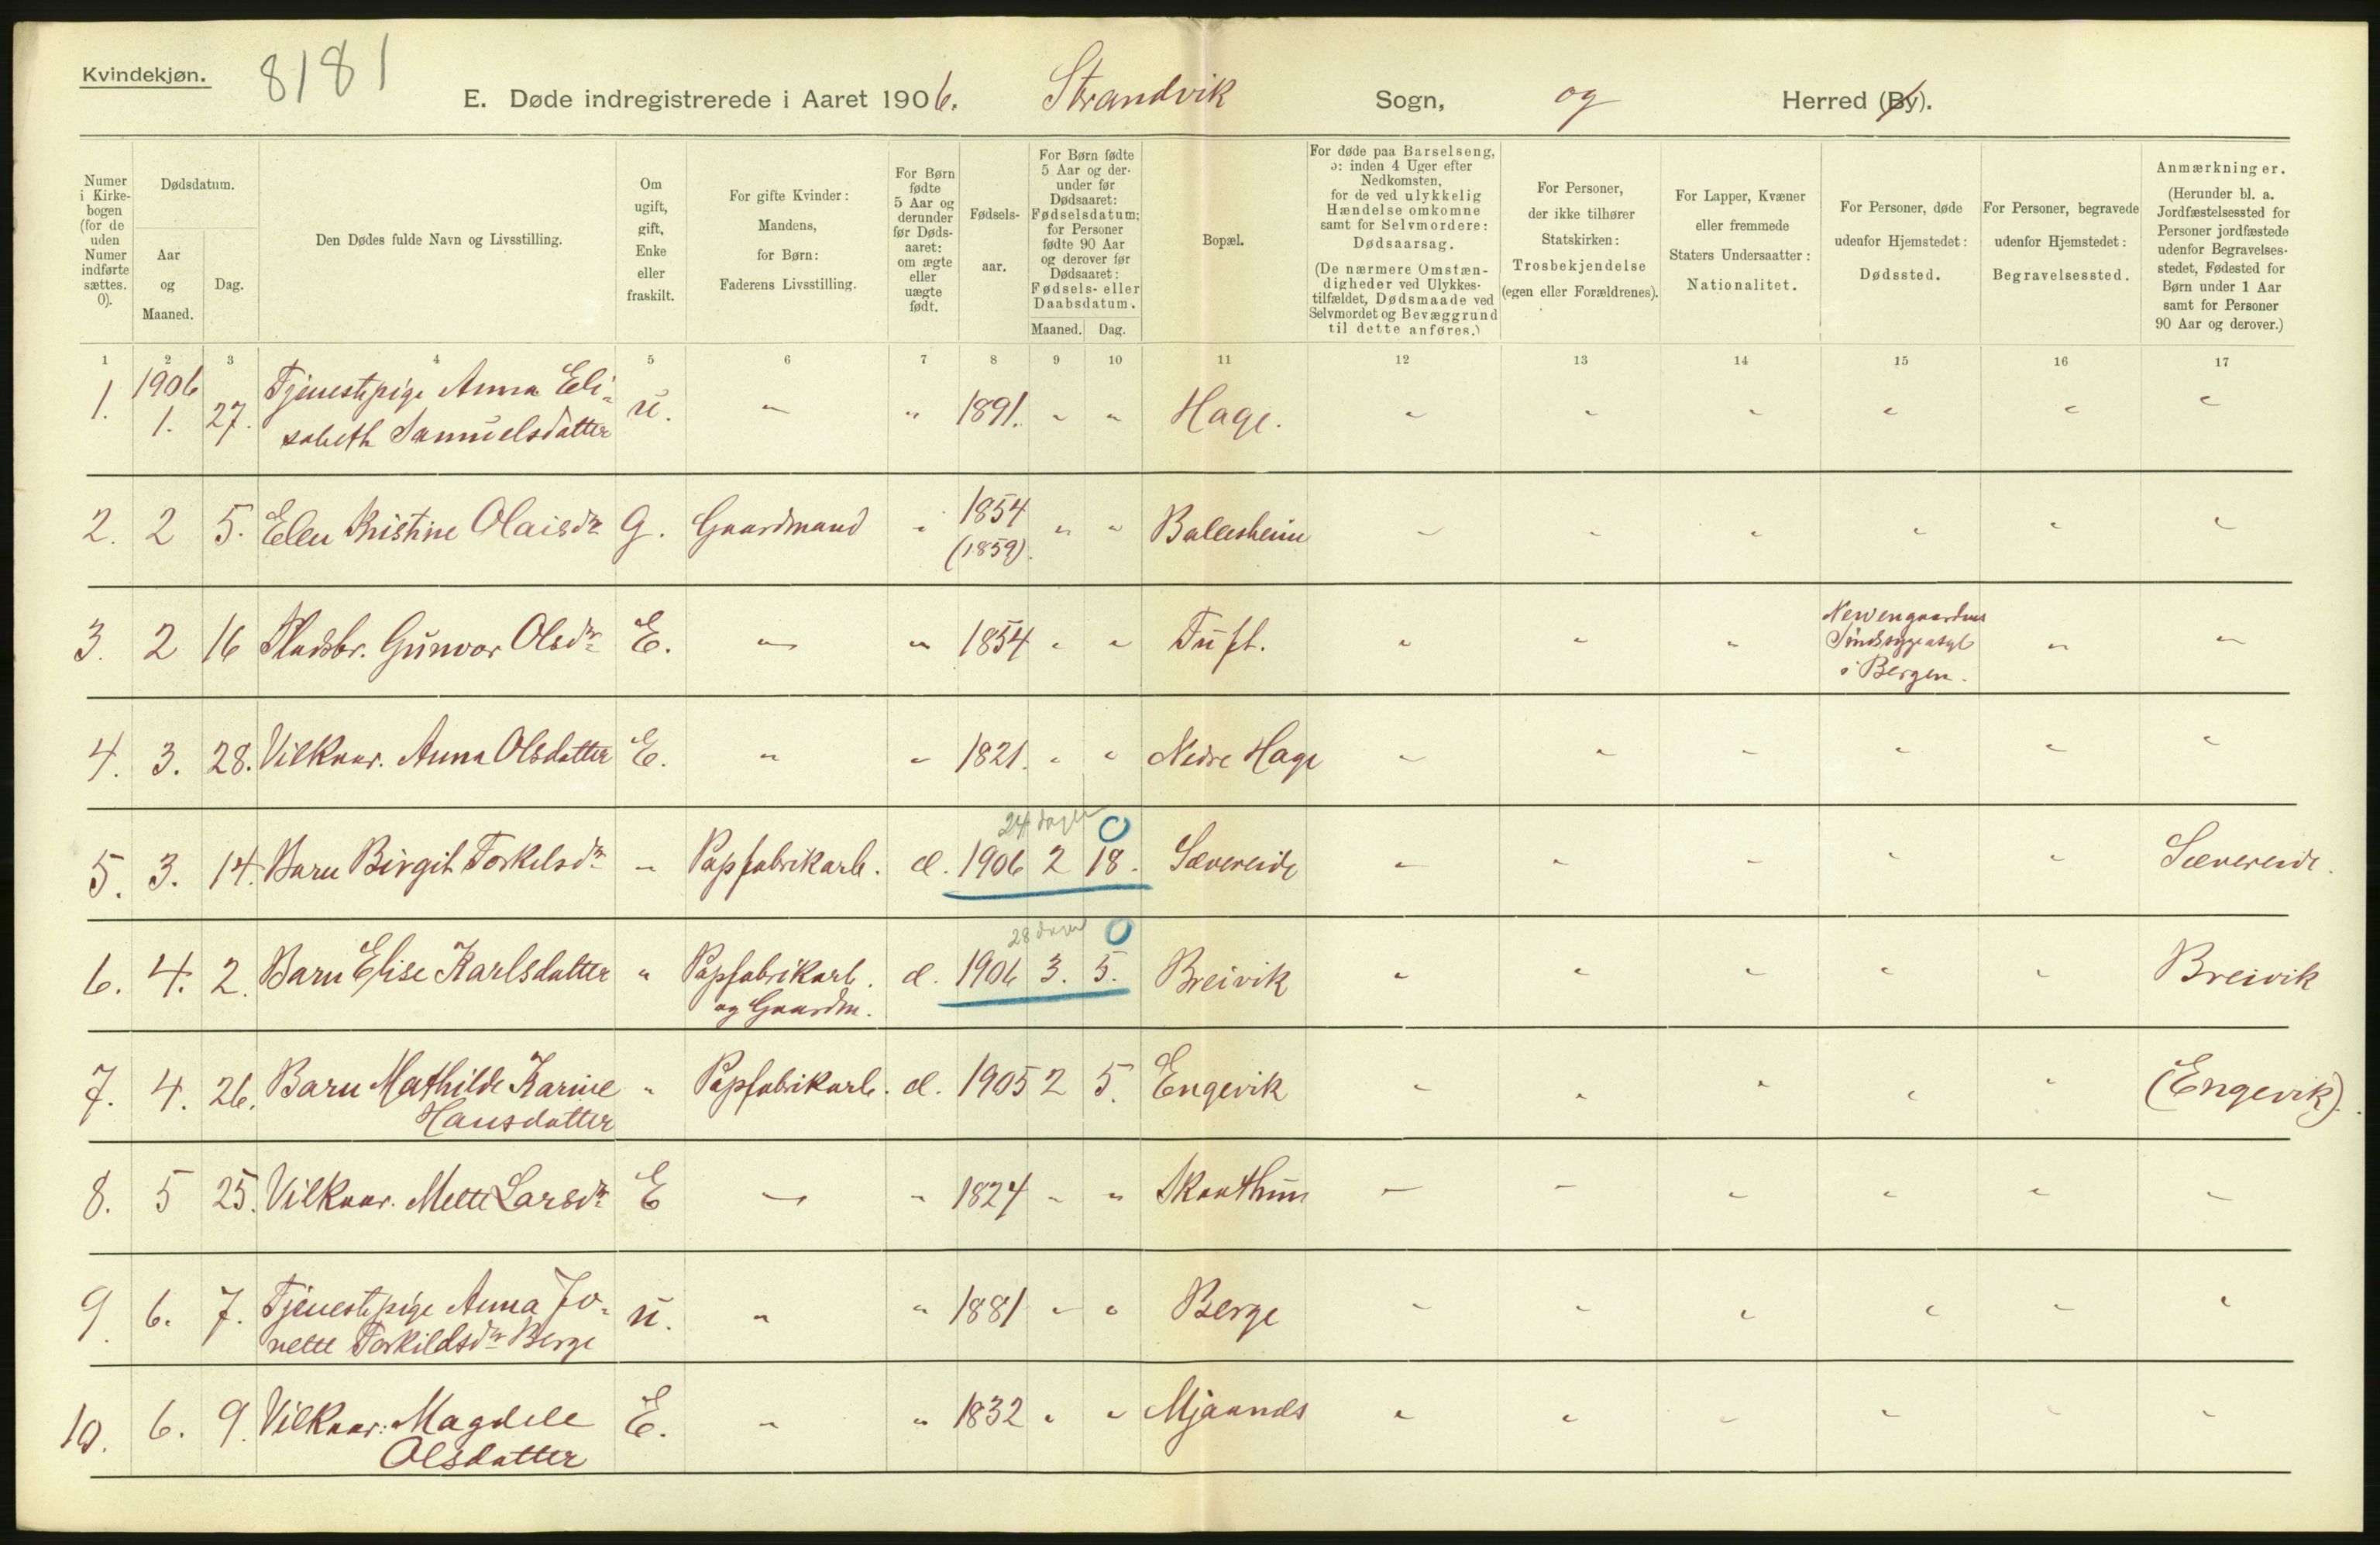 Kvindekjøn.
8181
E. Døde indregistrerede i Aaret 1906. Strandvik Sogn, og Herred (By).
Numer i Kirkebogen (for de uden Numer indførte sættes. 0).
Dødsdatum.
Aar og Maaned.
Dag.
Den Dødes fulde Navn og Livsstilling.
Om ugift, gift, Enke eller fraskilt.
For gifte Kvinder: Mandens, for Børn: Faderens Livsstilling.
For Børn fødte 5 Aar og derunder før Dødsaaret: om ægte eller uægte født.
Fødselsaar.
For Børn fødte 5 Aar og derunder før Dødsaaret: Fødselsdatum; for Personer fødte 90 Aar og derover før Dødsaaret: Fødsels- eller Daabsdatum.
Maaned. Dag.
Bopæl.
For døde paa Barselseng, ɔ: inden 4 Uger efter Nedkomsten, for de ved ulykkelig Hændelse omkomne samt for Selvmordere: Dødsaarsag.
(De nærmere Omstændigheder ved Ulykkestilfældet, Dødsmaade ved Selvmordet og Bevæggrund til dette anføres.)
For Personer, der ikke tilhører Statskirken: Trosbekjendelse (egen eller Forældrenes).
For Lapper, Kvæner eller fremmede Staters Undersaatter: Nationalitet.
For Personer, døde udenfor Hjemstedet: Dødssted.
For Personer, begravede udenfor Hjemstedet: Begravelsessted.
Anmærkninger.
(Herunder bl. a. Jordfæstelsessted for Personer jordfæstede udenfor Begravelsesstedet, Fødested for Børn under 1 Aar samt for Personer 90 Aar og derover.)
1 2 3 4 5 6 7 8 9 10 11 12 13 14 15 16 17
1906
1. 1. 27. Tjenestepige Anna Eli- u. " " 1891. " " Hage. " " " " " "
sabeth Samuelsdatter
2. 2 5. Elen Kristine Olaisdr G. Gaardmand " 1854 " " Ballesheim " " " " " "
(1859).
3. 2 16 Pladsbr. Gunvor Olsdr E. " " 1854 " " Tuft. " " " Nevengaardens " "
Sindssygeasyl
i Bergen.
4. 3. 28. Vilkaar. Anna Olsdatter E. " " 1821. " " Nedre Hage " " " " " "
24 dager 0
5. 3. 14. Barn Birgit Torkelsdr " Papfabrikarb. æ. 1906 2 18. Sævereide " " " " " Sævereide.
28 dager 0
6. 4. 2. Barn Elise Karlsdatter " Papfabrikarb. æ. 1906 3. 5. Breivik " " " " " Breivik
og Gaardm.
7. 4. 26. Barn Mathilde Karine " Papfabrikarb. æ. 1905 2 5. Engevik " " " " " (Engevik).
Hansdatter
8. 5 25. Vilkaar. Mette Larsdr E " " 1824 " " Skaathun " " " " " "
9. 6. 7. Tjenestepige Anna Jo- u. " " 1881 " " Berge " " " " " "
nette Torkildsdr Berge
10. 6. 9. Vilkaar. Magdele E. " " 1832 " " Mjaanæs " " " " " "
Olsdatter